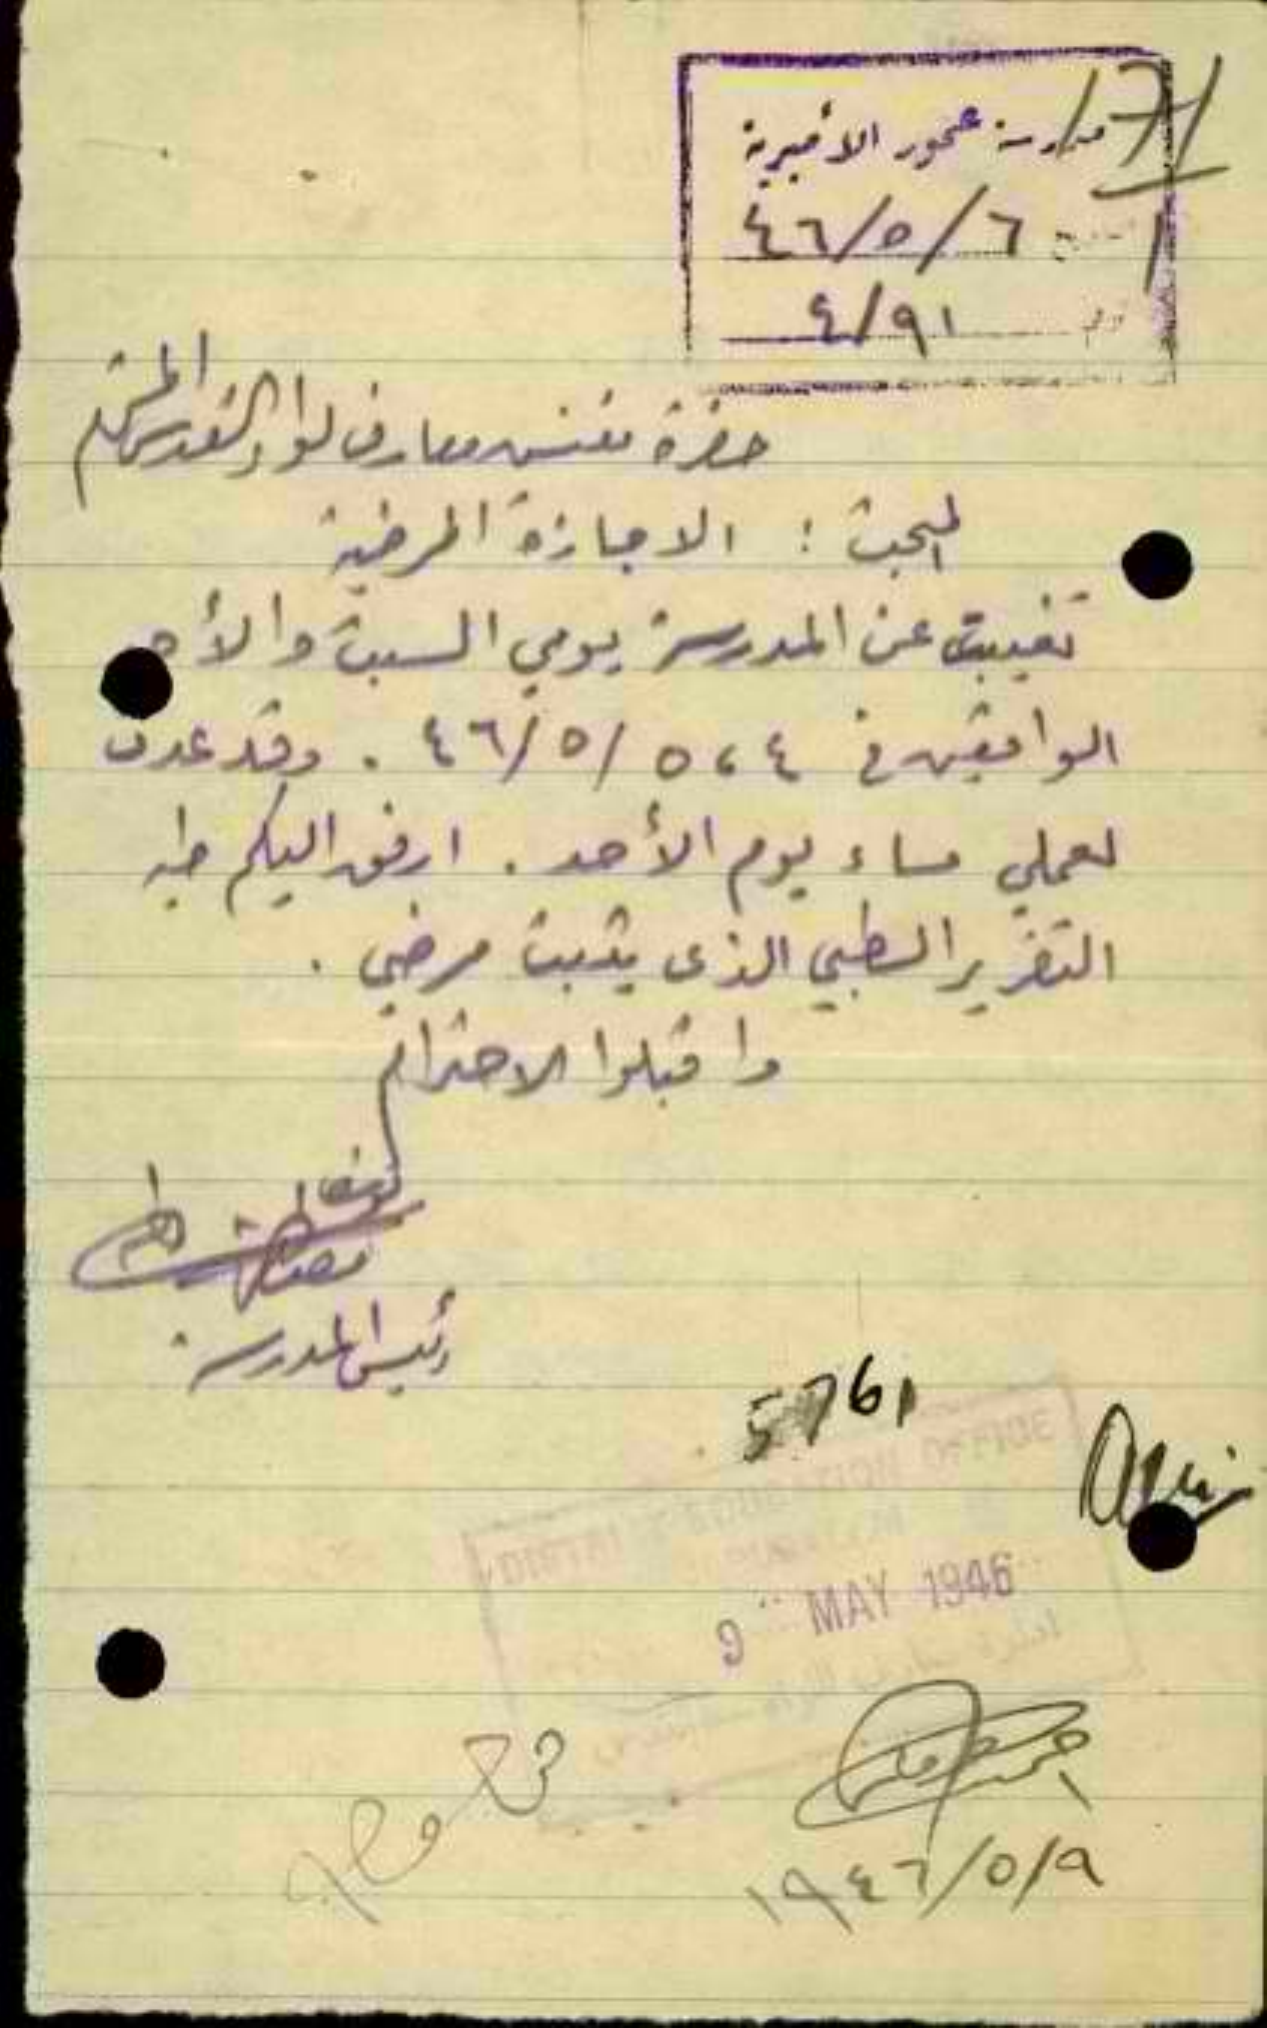 مدرسة عجور الأميرية
تاريخ ٤٦/٥/٦
رقم ٤/٩١
حضرة مفتش معارف لواء القدس المحترم
المبحث : الاجازة المرضية
تغيبت عن المدرسة يومي السبت والأحد
الواقعين في ٤ ، ٥ / ٥ / ٤٦ . وقد عدت
لعملي مساء يوم الأحد . ارفق اليكم طيه
التقرير الطبي الذي يثبت مرضي .
واقبلوا الاحترام
رئيس المدرسة
5761
DISTRICT EDUCATION OFFICE
9 MAY 1946
١٩٤٦/٥/٩